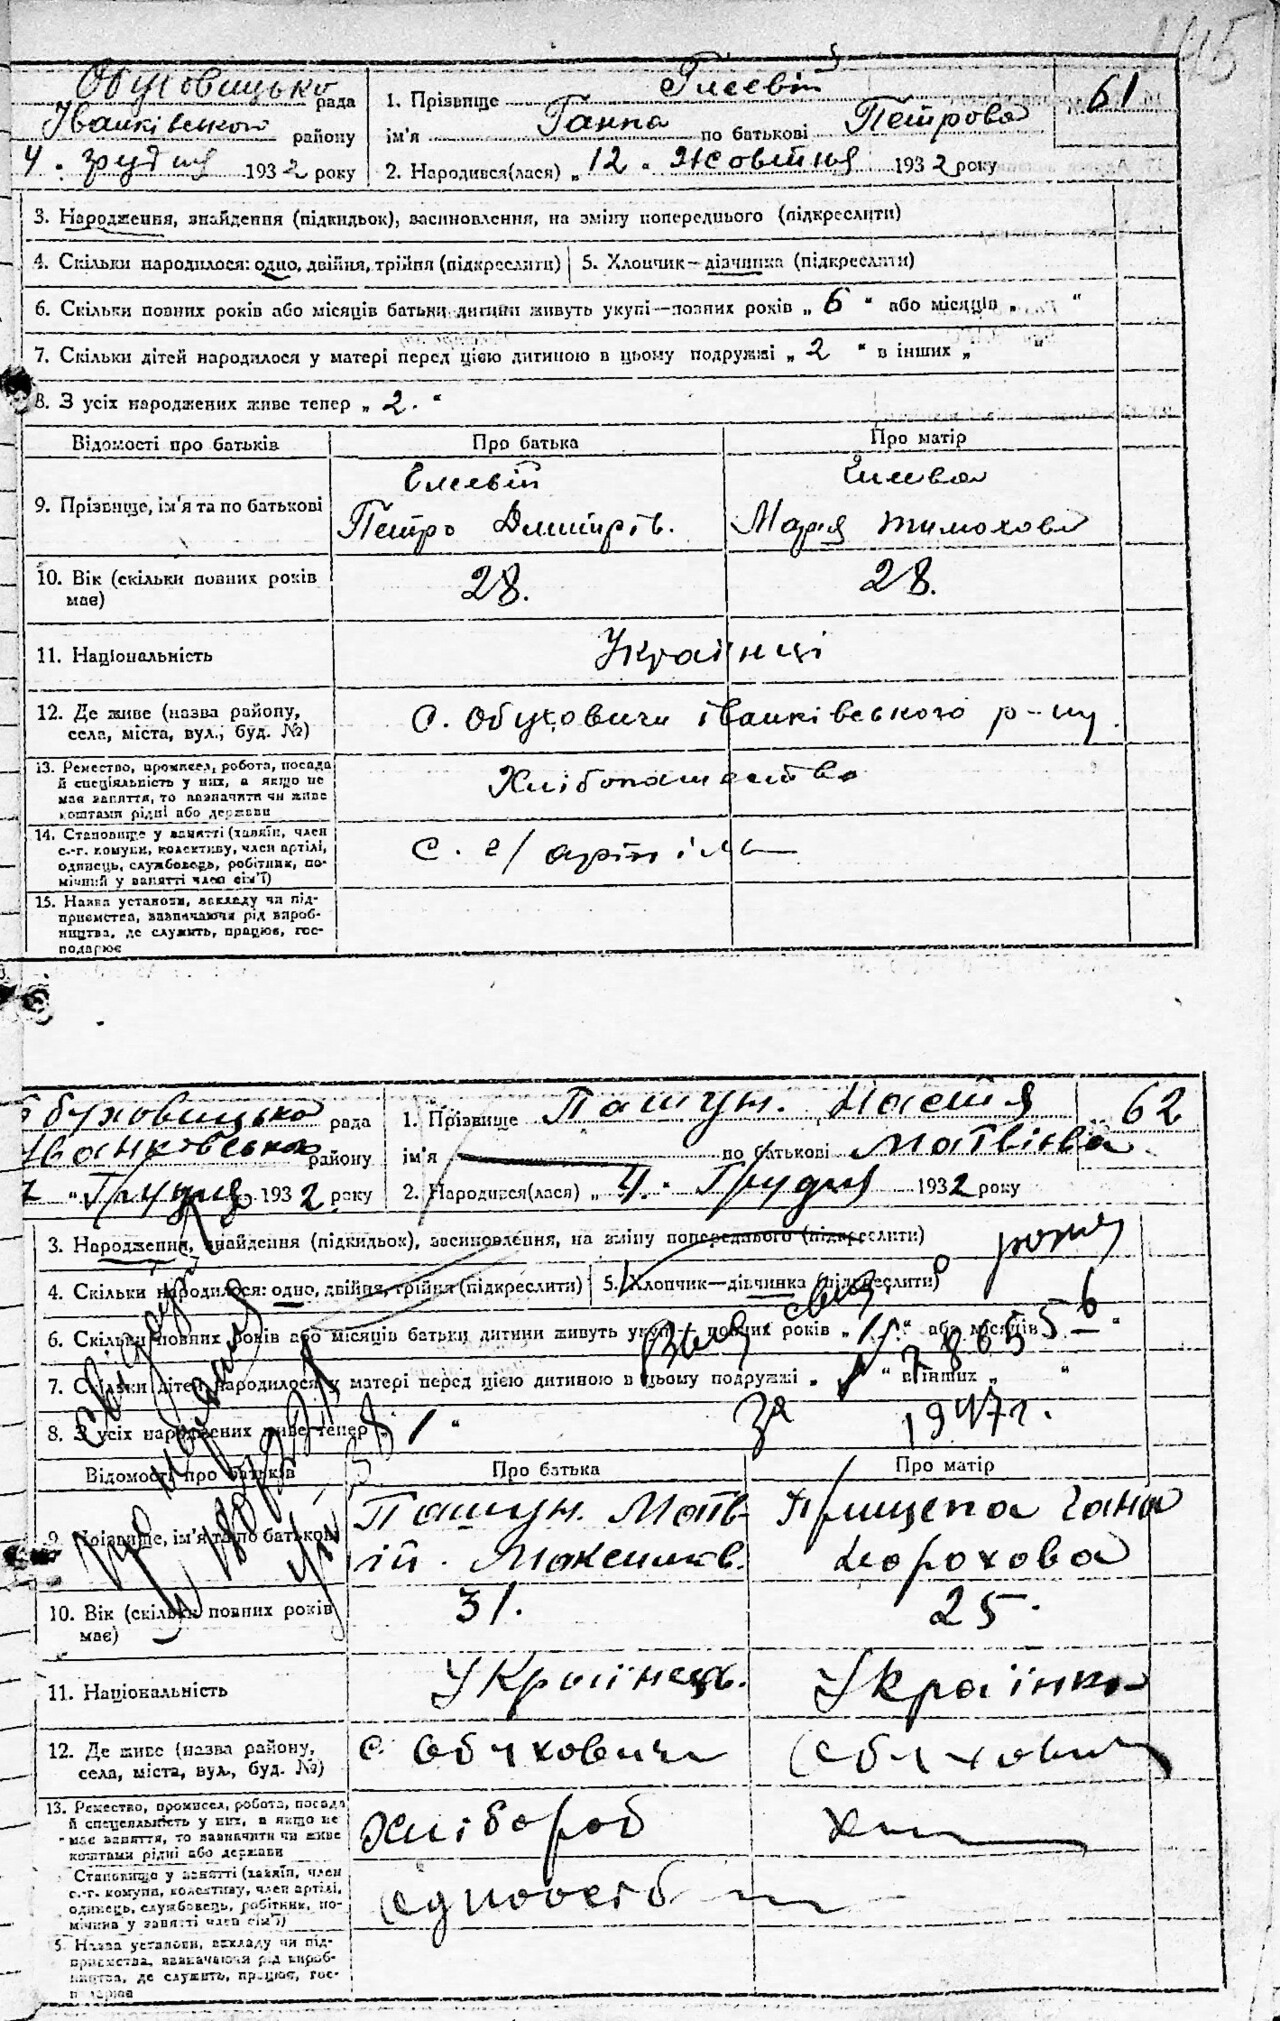 Обуховицько рада
Іванківського району
4. грудня 1932 року
1. Прізвище
ім'я Ганна по батькові Петрова
61
2. Народився(лася) „12" Жовтня 1932 року
3. Народження, знайдення (підкидьок), засиновлення, на зміну попереднього (підкреслити)
4. Скільки народилося: одно, двійня, трійня (підкреслити) 5. Хлопчик—дівчинка (підкреслити)
6. Скільки повних років або місяців батьки дитини живуть укупі—повних років „6" або місяців „ "
7. Скільки дітей народилося у матері перед цією дитиною в цьому подружжі „2" в інших „ "
8. З усіх народжених живе тепер „2."
Відомості про батьків Про батька Про матір
9. Прізвище, ім'я та по батькові
Петро Дмитрів. Марія Тимохова
10. Вік (скільки повних років має) 28. 28.
11. Національність Українці
12. Де живе (назва району, села, міста, вул., буд. №) с. Обуховичи іванківського р-ну.
13. Ремество, промисел, робота, посада й спеціяльність у них, а якщо не має заняття, то зазначити чи живе коштами рідні або держави Хлібопашество
14. Становище у занятті (хазяїн, член с.-г. комуни, колективу, член артілі, одинець, службовець, робітник, помічний у занятті член сім'ї) с. г/ артіль
15. Назва установи, закладу чи підприємства, зазначаючи рід виробництва, де служить, працює, господарює
Обуховицько рада
Іванковсько району
Грудня 1932 року
1. Прізвище Пашун. Настя
ім'я по батькові Матвієва
62
2. Народився(лася) „4." Грудня 1932 року
3. Народження, знайдення (підкидьок), засиновлення, на зміну попереднього (підкреслити)
4. Скільки народилося: одно, двійня, трійня (підкреслити) 5. Хлопчик—дівчинка (підкреслити)
6. Скільки повних років або місяців батьки дитини живуть укупі—повних років
7. Скільки дітей народилося у матері перед цією дитиною в цьому подружжі „ " в інших „ "
8. З усіх народжених живе тепер „1"
За 1947 г.
Відомості про батьків Про батька Про матір
9. Прізвище, ім'я та по батькові
Пашун. Матвій. Максимів. Прищепа Гана
10. Вік (скільки повних років має) 31. 25.
11. Національність Українець. Українка
12. Де живе (назва району, села, міста, вул., буд. №) с. Обуховичи с Обуховичи
13. Ремество, промисел, робота, посада й спеціяльність у них, а якщо не має заняття, то зазначити чи живе коштами рідні або держави Хлібороб
Становище у занятті (хазяїн, член с.-г. комуни, колективу, член артілі, одинець, службовець, робітник, помічний у занятті член сім'ї)
5. Назва установи, закладу чи підприємства, зазначаючи рід виробництва, де служить, працює, господарює